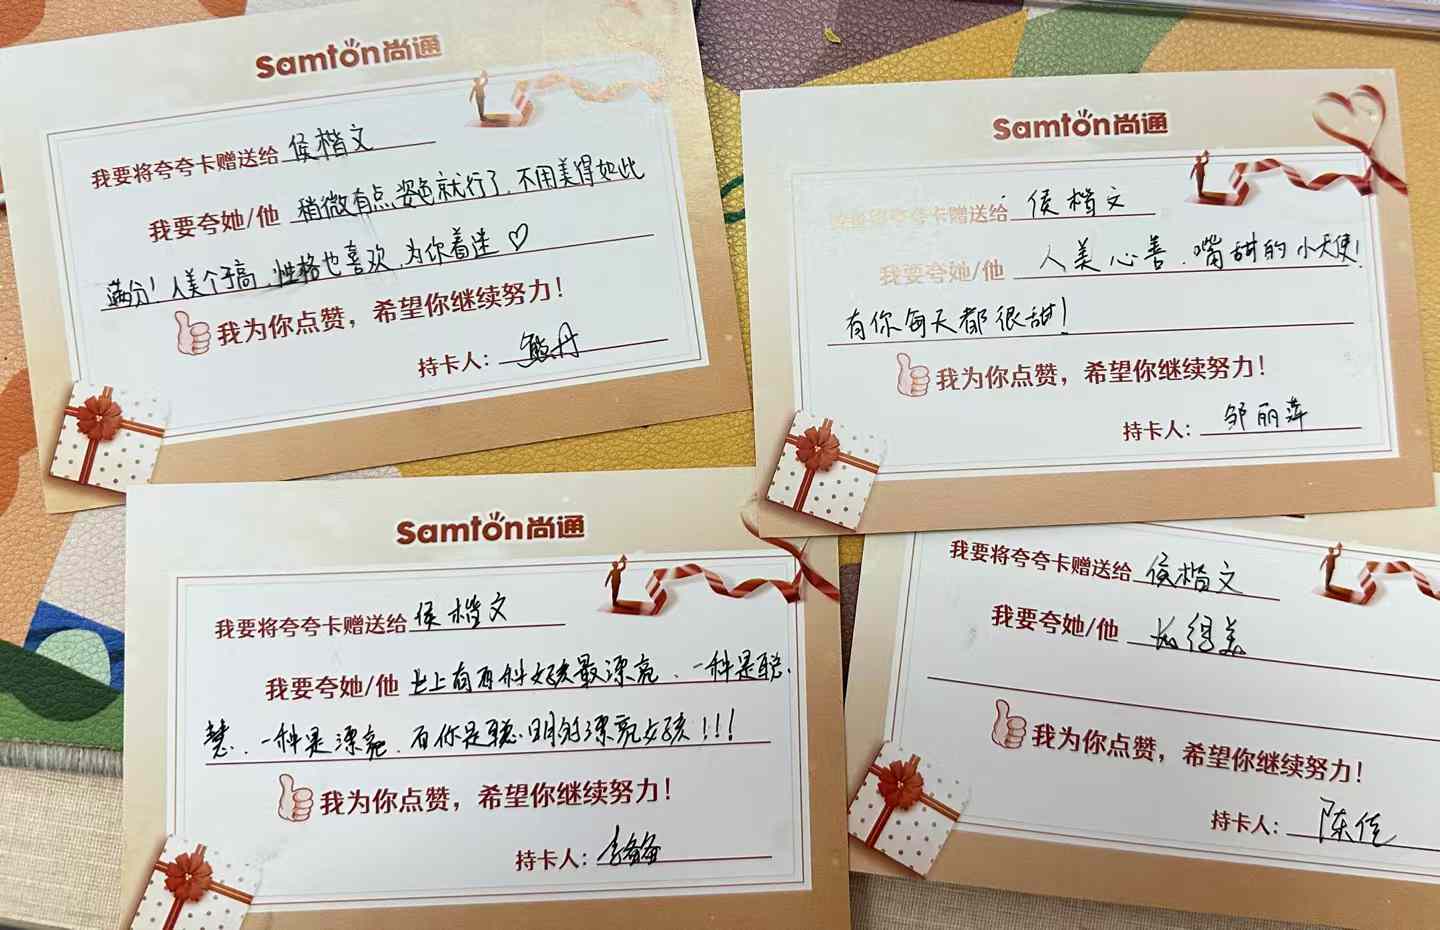 Samton尚通
我要将夸夸卡赠送给 侯楷文
我要夸她/他 稍微有点姿色就行了、不用美得如此
满分！人美个子高、性格也喜欢、为你着迷♡
我为你点赞，希望你继续努力！
持卡人：
Samton尚通
我要将夸夸卡赠送给 侯楷文
我要夸她/他 人美心善、嘴甜的小天使！
有你每天都很甜！
我为你点赞，希望你继续努力！
持卡人： 邹丽萍
Samton尚通
我要将夸夸卡赠送给 侯楷文
我要夸她/他 世上有两种女孩最漂亮、一种是聪
慧、一种是漂亮、而你是聪明的漂亮女孩！！！
我为你点赞，希望你继续努力！
持卡人：
我要将夸夸卡赠送给 侯楷文
我要夸她/他 长得美
我为你点赞，希望你继续努力！
持卡人： 陈佳